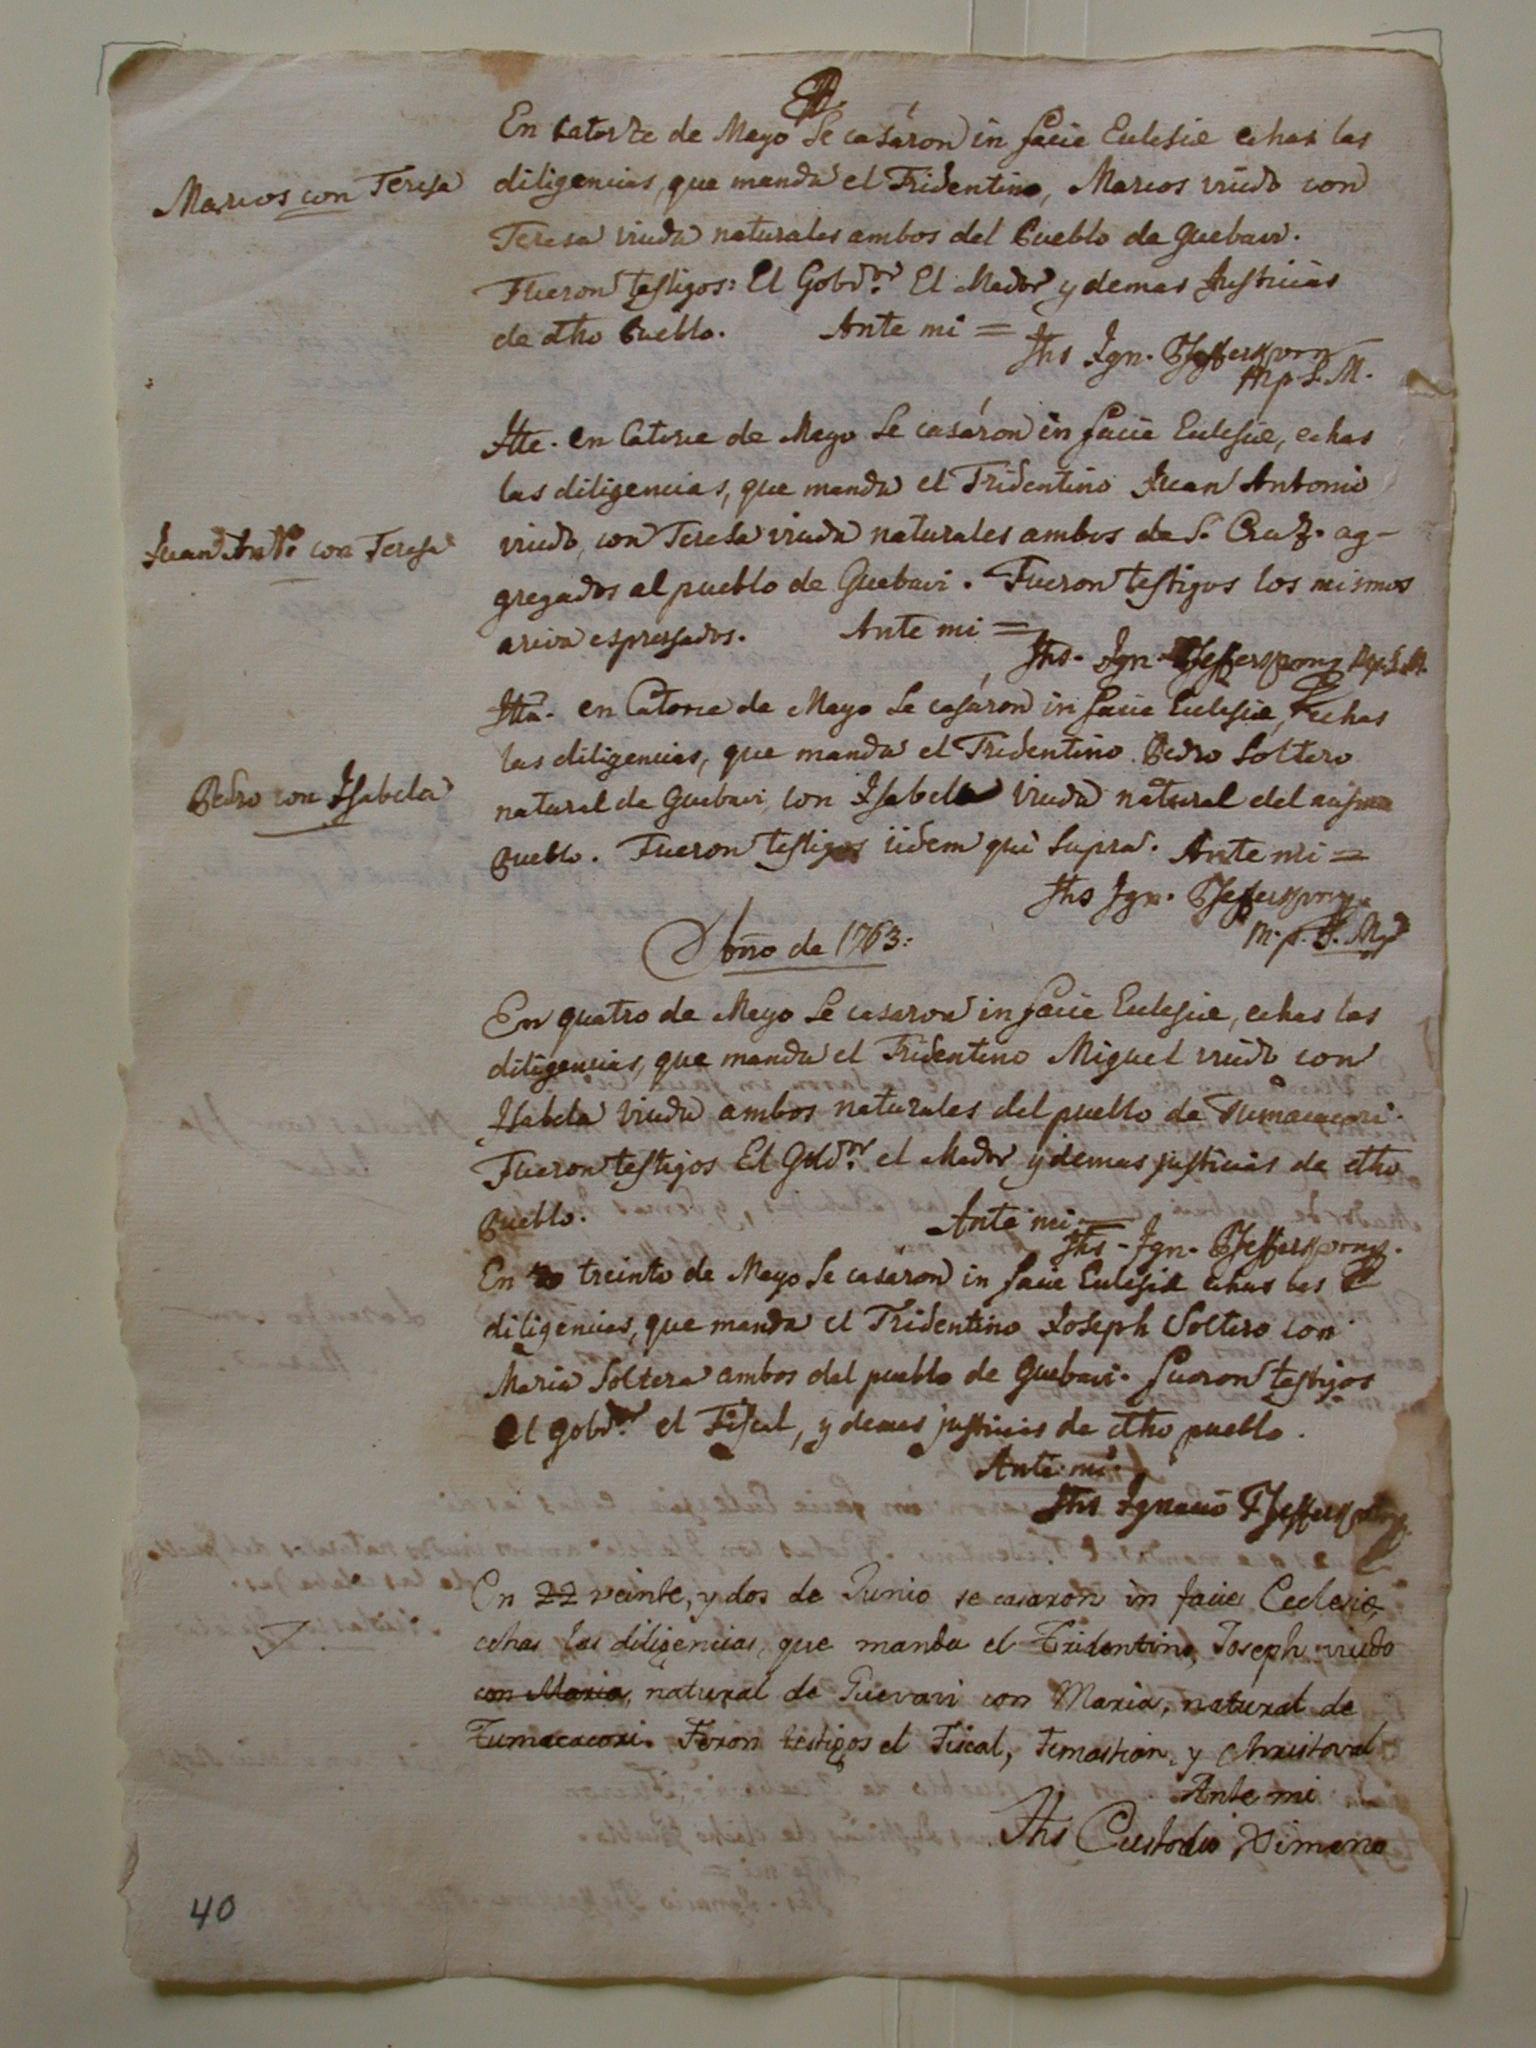 En Catorze de Mayo Se casáron in facie Eclesie echas las
Marcos con Teresa
diligencias, que manda el Tridentino, Marcos viudo con
Teresa viuda naturales ambos del Pueblo de Guebavi.
Fueron testigos: El Gobdor. El Mador y demas Justicias
de dho Pueblo. Ante mi =
Jhs Ign. Pfefferkorn
Mp S. M.
Itte. en Catorce de Mayo Se casáron in facie Eclesie, echas
las diligencias, que manda el Tridentino Juan Antonio
Juan Anto con Teresa
viudo, con Teresa viuda naturales ambos de S. Cruz. ag-
gregados al pueblo de Guebavi. Fueron testigos los mismos
ariva espressados. Ante mi =
Jhs. Ign. Pfefferkorn Mp. S. M.
Itta. en Catorce de Mayo Se casáron in facie Eclesie, echas
las diligencias, que manda el Tridentino Pedro Soltero
Pedro con Isabela
natural de Guebavi, con Isabela viuda natural del mismo
Pueblo. Fueron testigos iidem qui Supra. Ante mi =
Jhs Ign. Pfefferkorn
M. p. S. M.
Año de 1763:
En quatro de Mayo Se casaron in facie Eclesie, echas las
diligencias, que manda el Tridentino Miguel viudo con
Isabela viuda ambos naturales del pueblo de Tumacacori.
Fueron testigos El Gobdor. el Mador y demas justicias de dho
Pueblo. Ante mi =
Jhs - Ign. Pfefferkorn.
En treinta de Mayo Se casaron in facie Eclesie echas las
diligencias, que manda el Tridentino Joseph Soltero con
Maria Soltera ambos del pueblo de Guebavi. fueron testigos
el gobdor. el Fiscal, y demas justicias de dho pueblo.
Ante mi
Jhs Ignacio Pfefferkorn
En 22 veinte, y dos de Junio se casaron in facie Ecclesie,
echas las diligencias, que manda el Tridentino, Joseph viudo
con Maria, natural de Guevavi con Maria, natural de
Tumacacori. Feron testigos el Fiscal, Temastian, y Christoval
Ante mi
Jhs Custodio Ximeno
40